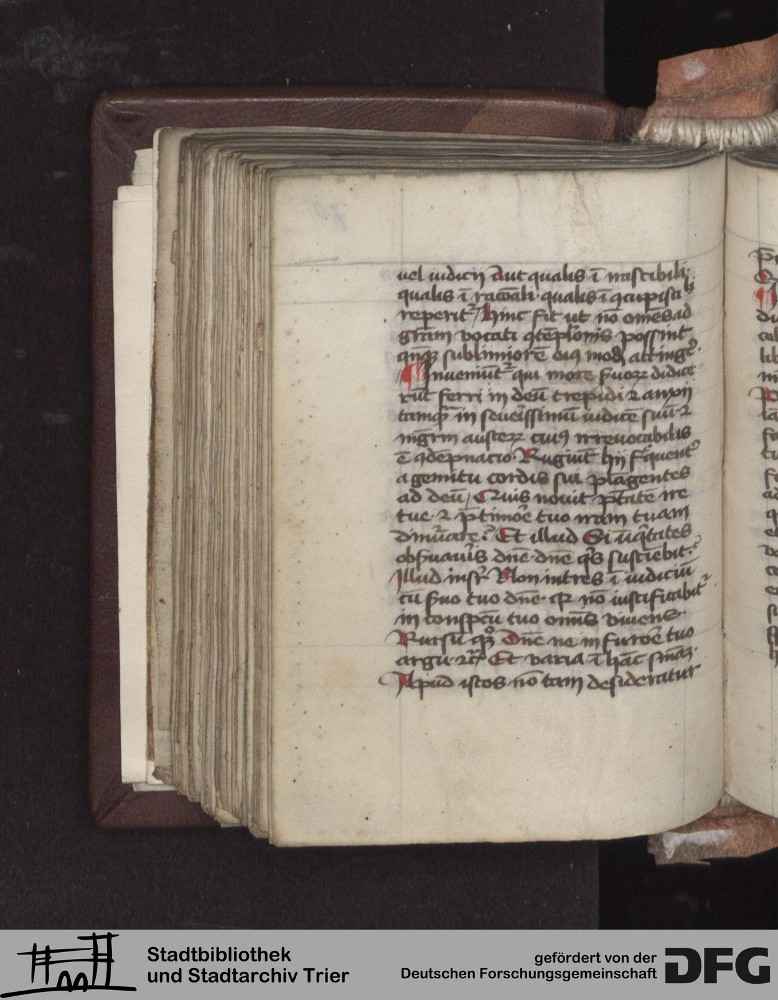 uel iudicij Aut qualis ī irascibili
qualis ī racōali qualis ī ꝯcupisci
reperit᷑ hinc fit ut nō om̄es ad
gr̄am vocati ꝯtēplōnis possint
quēq₃ sublimiorē eius modū attinge᷑
Inueniūt᷑ qui more ẜuoꝝ didice
rūt ferri in deū trepidi ⁊ anxij
tamq̄ in seuerissimū iudicē suū ⁊
mḡrm austerꝝ cuiꝰ irreuocabilis
ē ꝯdempnacio Rugiūt hij freq̄uent᷑
a gemitu cordis sui plangentes
ad deū Quis nouit ptātē ire
tue ⁊ p̄ timoē tuo iram tuam
dinūare Et illud Si iniq̄tates
obẜuauis dn̄e dn̄e q̄s sustiebit
Illud insr̄ Non intres ī iudiciū
cū ẜuo tuo dn̄e qꝛ nō iustificabit᷑
in conspcū tuo om̄is viuens
Rursū q₃ Dn̄e ne in furoē tuo
argu ⁊c̄ Et varia ī hāc sn̄iaꝫ
Apud istos nō tam desideratur
Stadtbibliothek
und Stadtarchiv Trier
gefördert von der
Deutschen Forschungsgemeinschaft
DFG